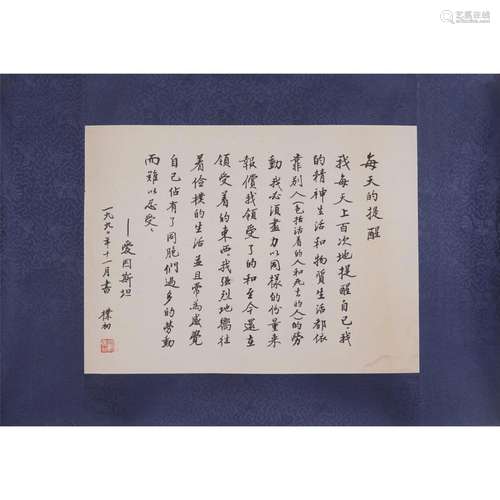 每天的提醒
我每天上百次地提醒自己:我
的精神生活和物質生活都依
靠别人(包括活着的人和死去的人)的劳
動,我必須盡力以同樣的份量来
報償我領受了的和至今還在
領受着的東西。我强烈地嚮往
着儉樸的生活並且常為感覺
自己佔有了同胞們過多的勞動
而難以忍受、
——愛因斯坦
一九九〇年十一月書 樸初
艺狐在线